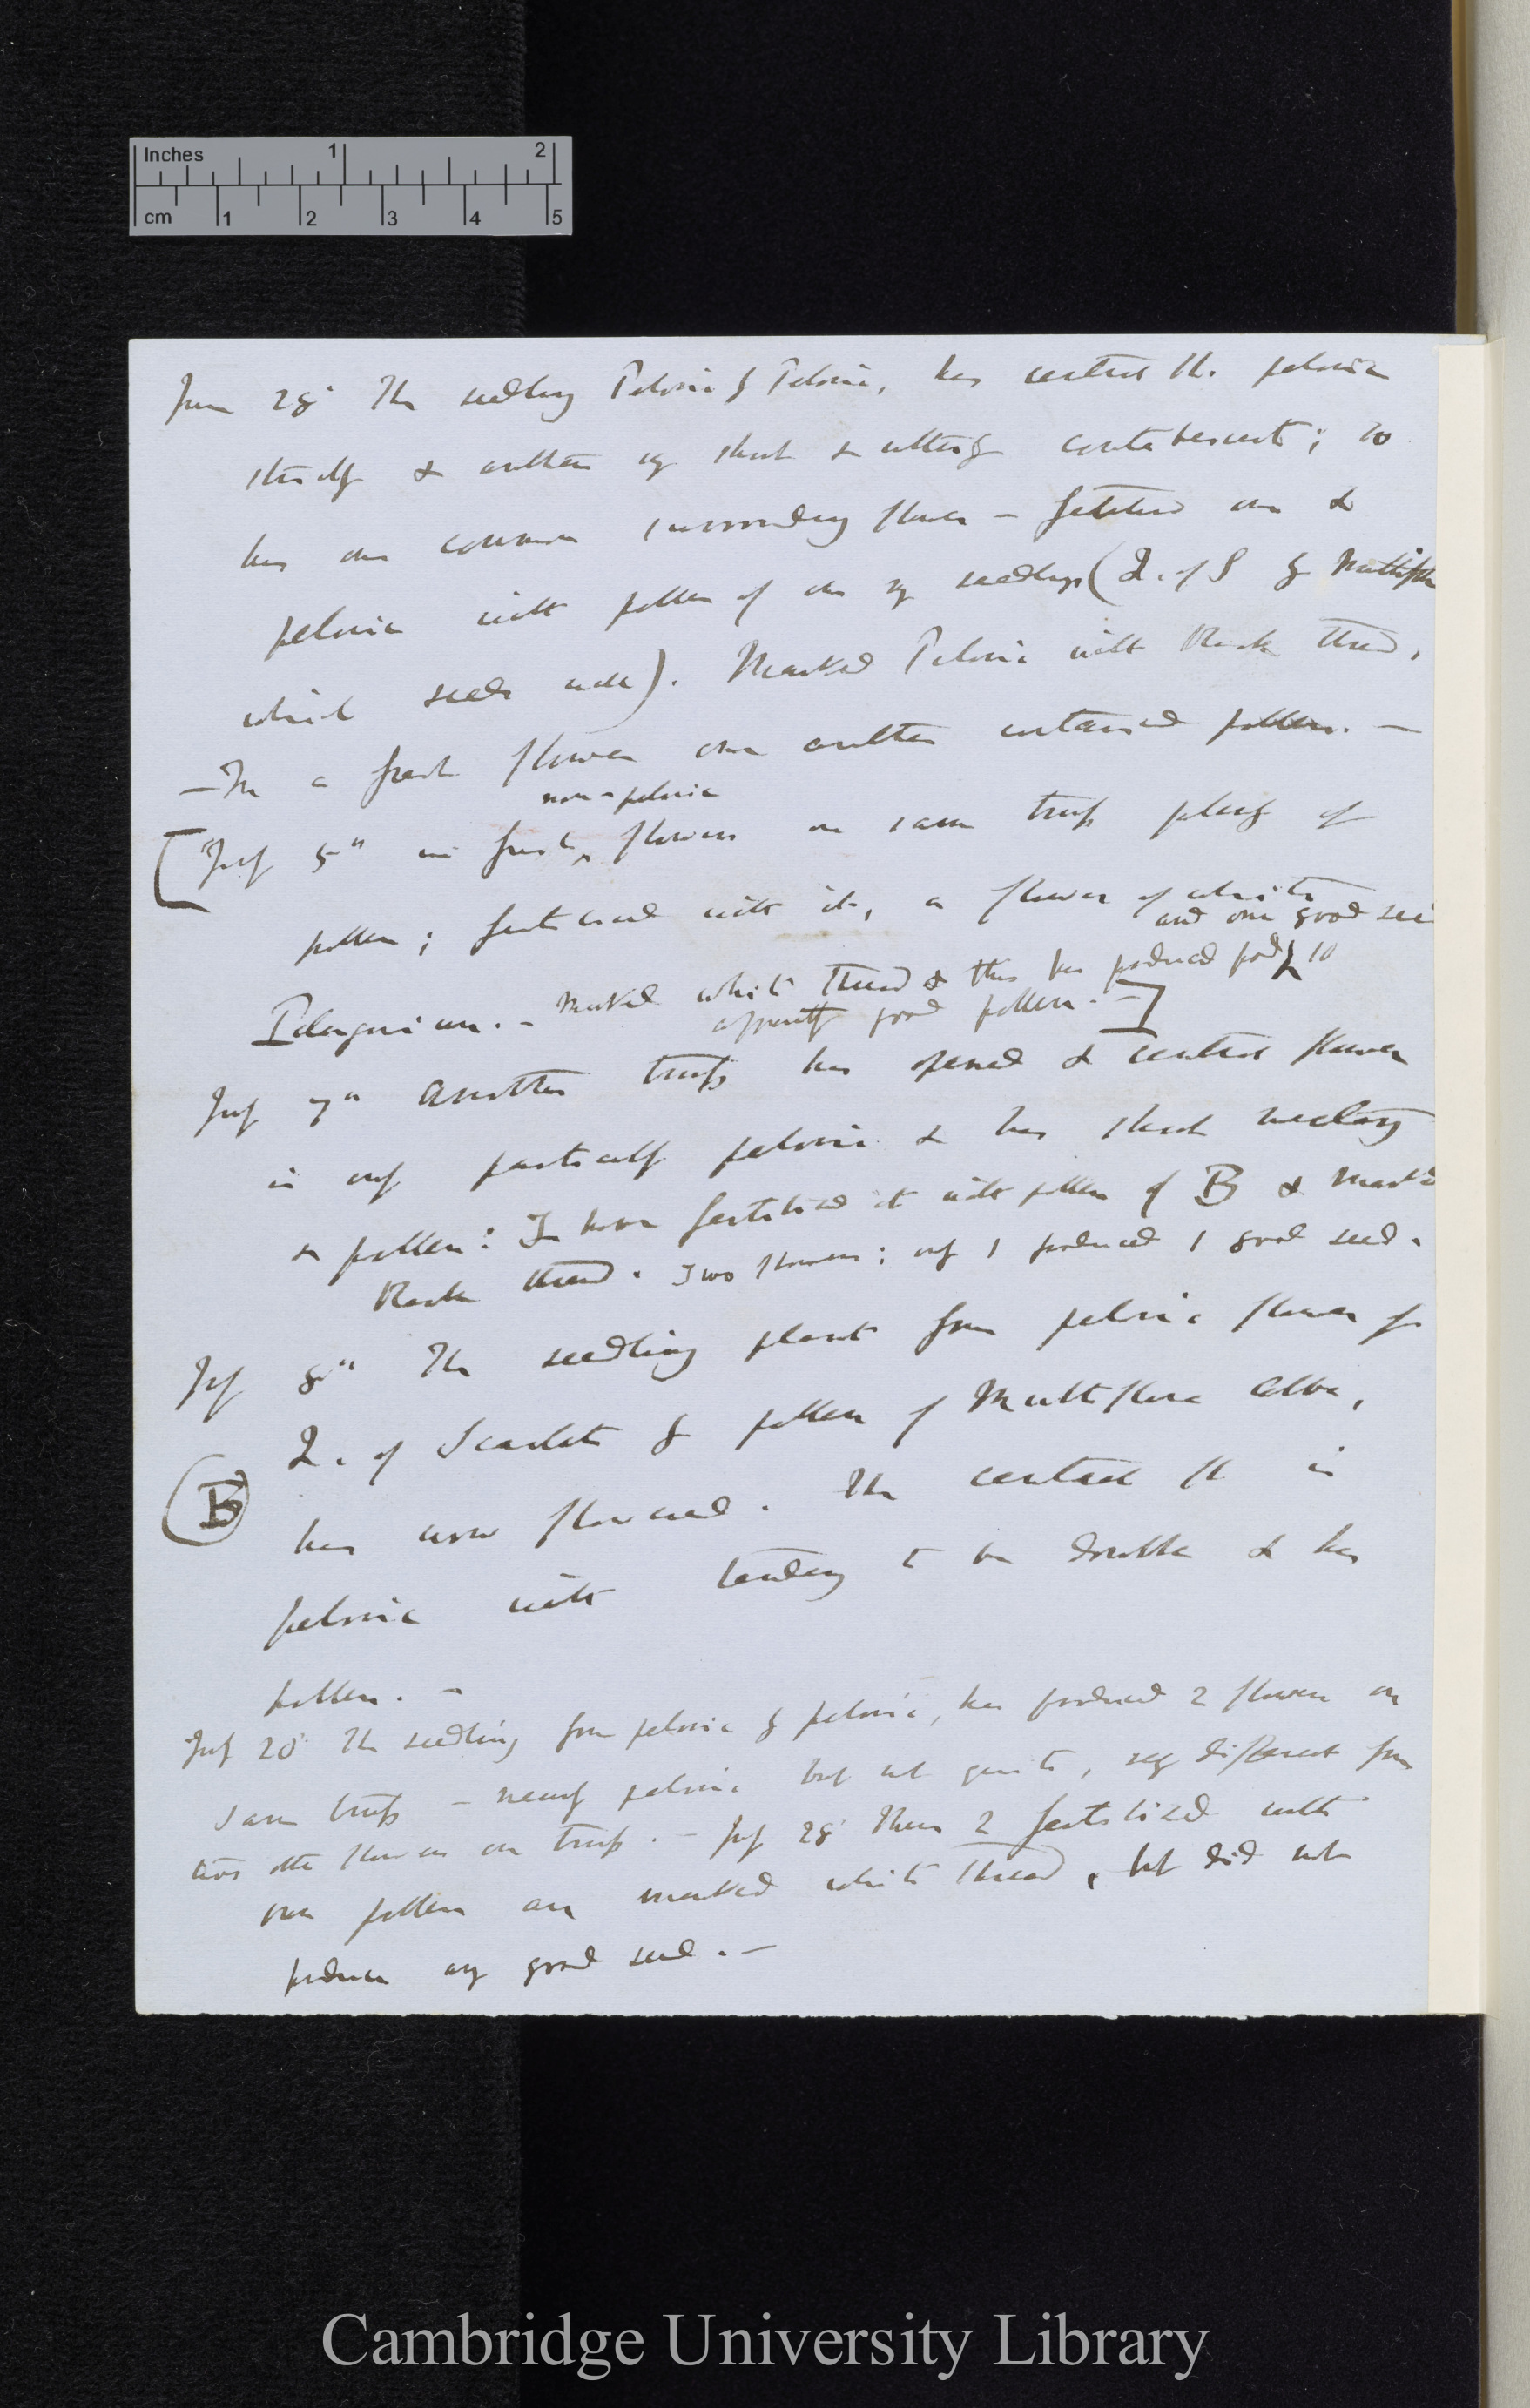 Inches 1 2
cm 1 2 3 4 5
June 28' The seedling Peloric & Peloric, has central fl. peloric
& anthers very short & utterly contabescent; so
has one common surrounding flower — fertilised one &
peloric with pollen of one of seedlings (Q. of S & Multiflora
which seeds well). Marked Peloric with Black thread,
— In a fresh flower one anther contained pollen. —
non-peloric
[July 5" in fresh ^ flowers on same truss plenty of
pollen; fertilised with it, a flower of white
and one good see
Pelargonium. — Marked white thread & this has produced pod & 10
apparently good pollen. —]
July 7" Another truss has opened & central flower
is only partially peloric & has short nectary
& pollen: I have fertilised it with pollen of B & marked
Black thread. Two flowers; only 1 produced 1 good seed.
July 8" The seedling plant from peloric flower of
Q. of Scarlet & pollen of Multiflora alba,
(B)
has now flowered. The central fl is
peloric with tendency to be double & has
pollen. —
July 20' The seedling from peloric & peloric, has produced 2 flowers on
same truss — nearly peloric but not quite, very different from
two other flowers on truss. — July 28' These 2 fertilized with
own pollen are marked white thread, but did not
produce any good seed. —
Cambridge University Library